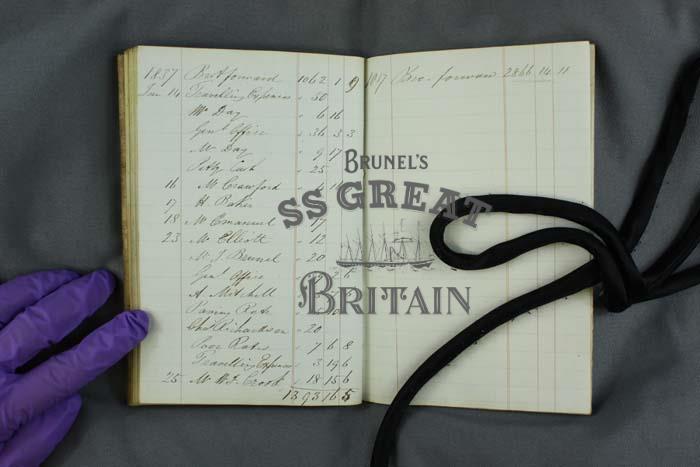 1837 Brot forward 1062 1 9
Jan 14 Travelling Expences " 50
Mr Day " 6 16
Genl Office " 36 3 3
Mr Day " 9 17
Petty Cash " 25
16 Mr Crawford
17 H Baker
18 Mr Emanuel " 17
23 Mr Elliott " 12
Mr J. Brunel " 20
Genl Office
A Mitchell
Parry Rate
Chas Richardson " 20
Poor Rates " 7 6 8
Travelling Expences " 3 19 6
25 Mr W. J. Crook " 18 15 6
1393 16 5
forward 2866 14 11
BRUNEL'S
SS GREAT
BRITAIN